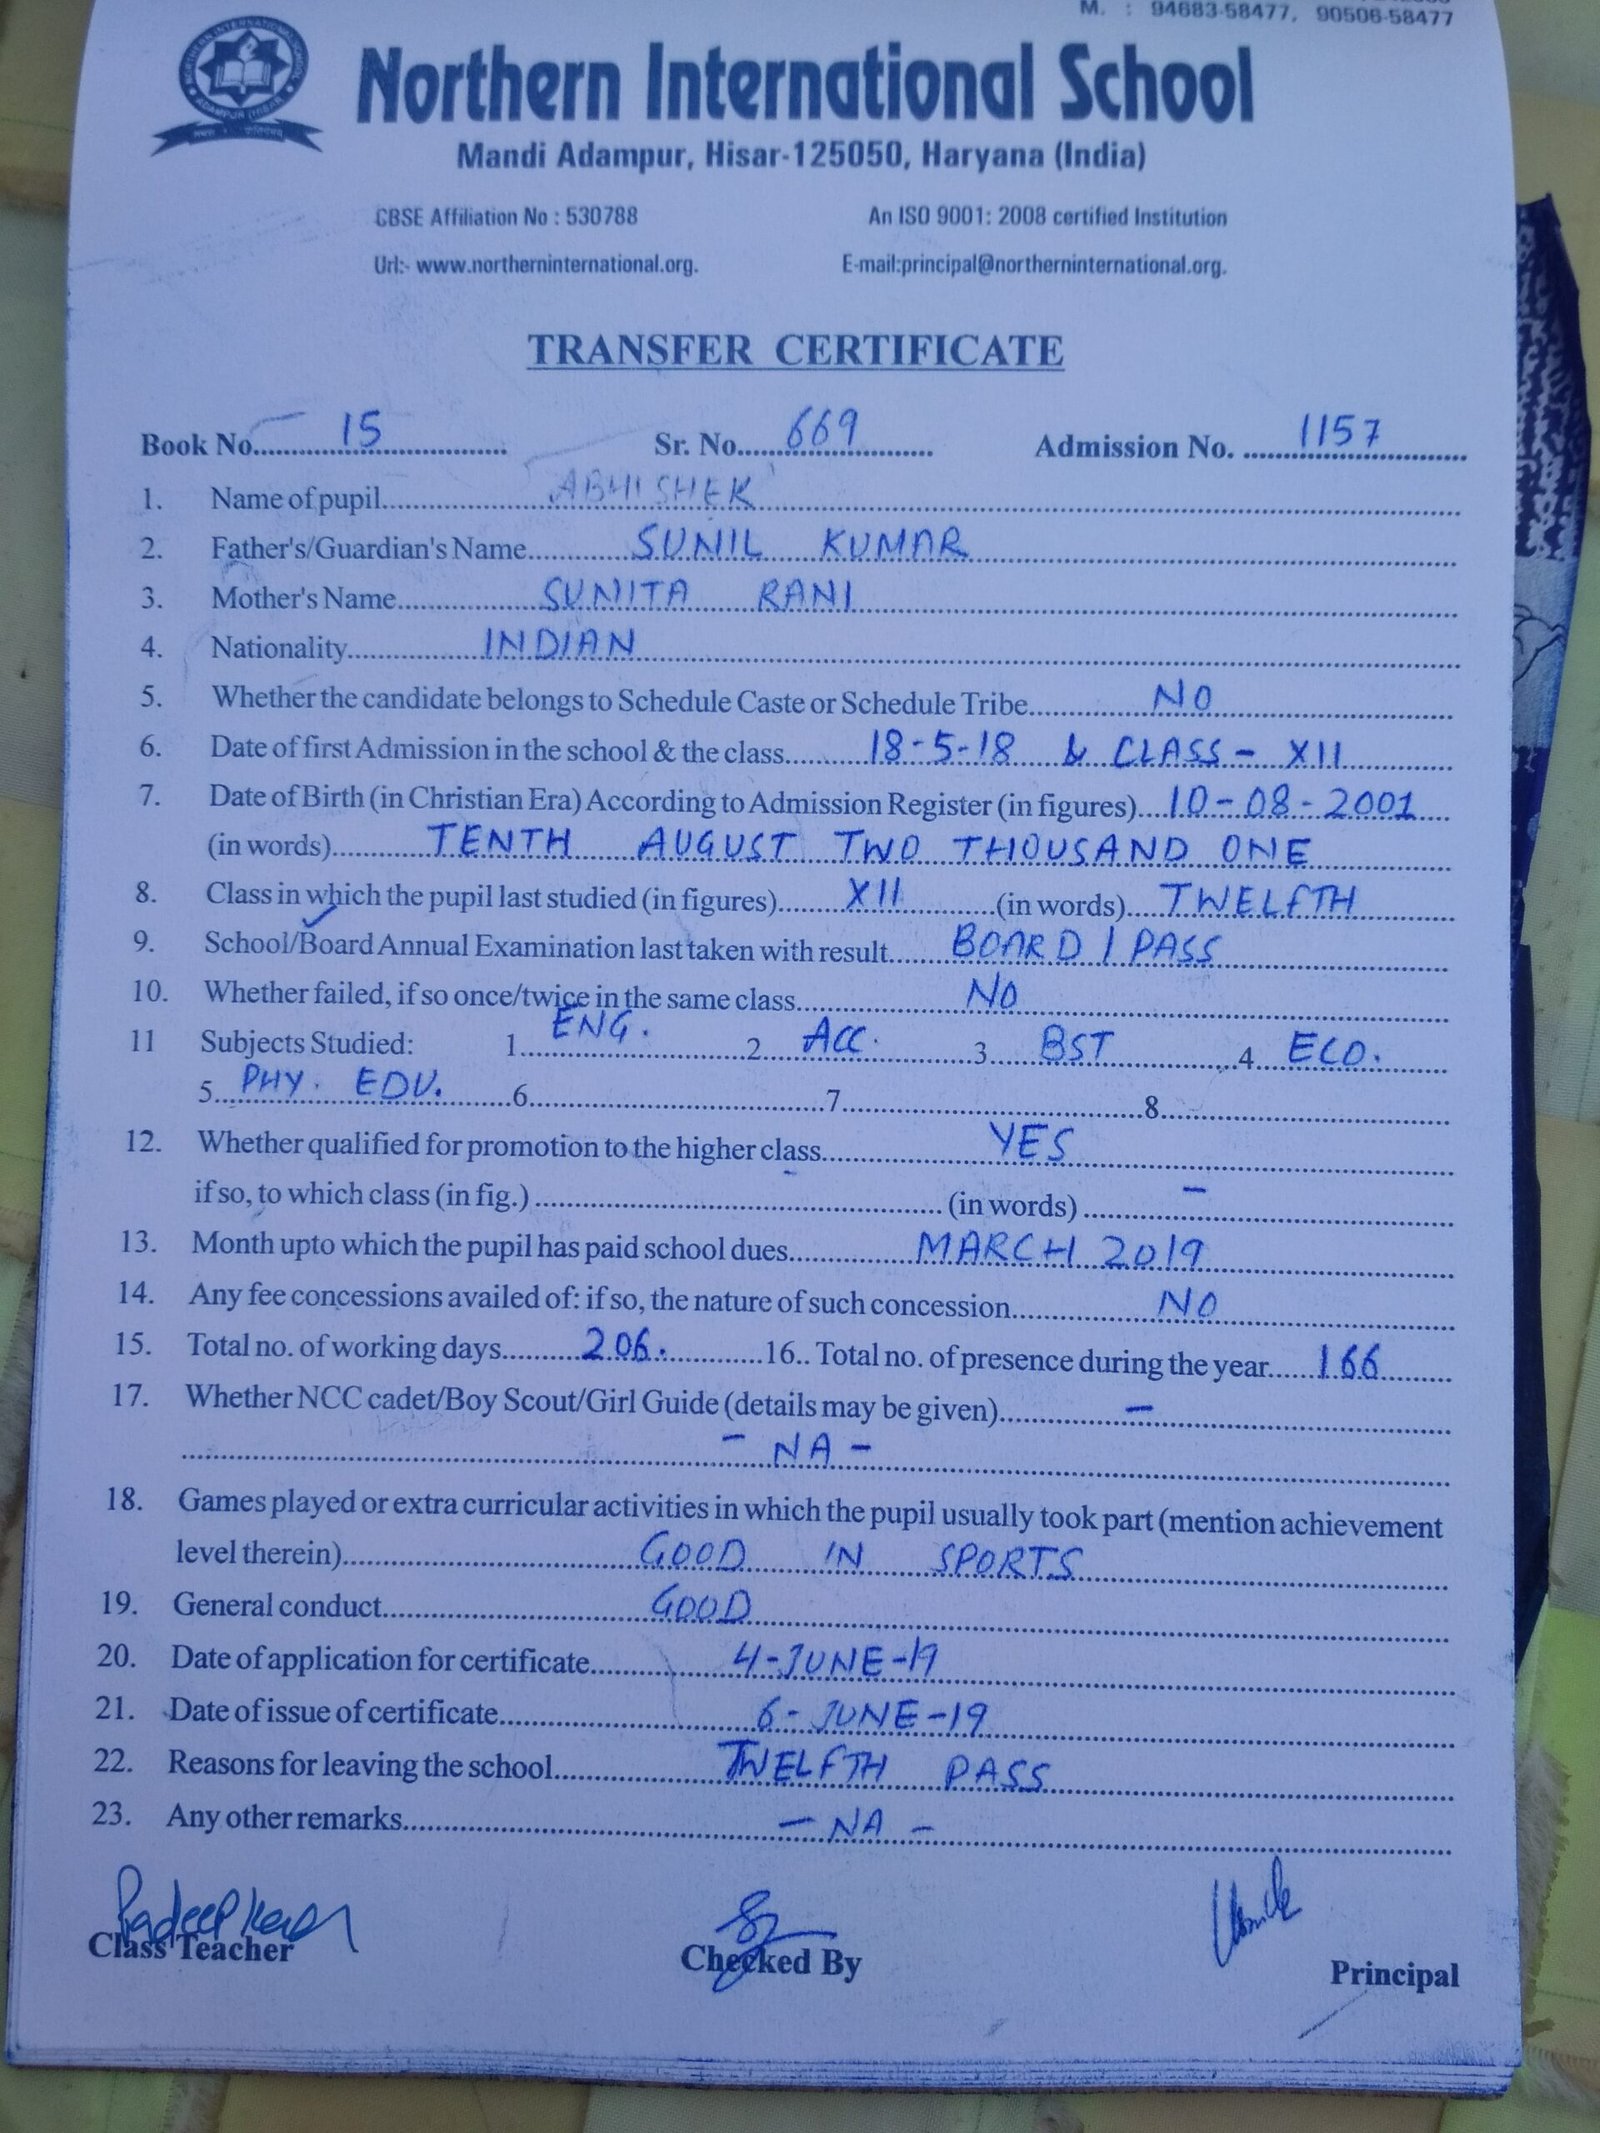 M. : 94683-58477, 90506-58477
NORTHERN INTERNATIONAL SCHOOL
ADAMPUR (HISAR)
Northern International School
Mandi Adampur, Hisar-125050, Haryana (India)
CBSE Affiliation No : 530788 An ISO 9001: 2008 certified Institution
Url:- www.northerninternational.org. E-mail:principal@northerninternational.org.
TRANSFER CERTIFICATE
Book No. 15 Sr. No. 669 Admission No. 1157
1. Name of pupil ABHISHEK
2. Father's/Guardian's Name SUNIL KUMAR
3. Mother's Name SUNITA RANI
4. Nationality INDIAN
5. Whether the candidate belongs to Schedule Caste or Schedule Tribe NO
6. Date of first Admission in the school & the class 18-5-18 & CLASS - XII
7. Date of Birth (in Christian Era) According to Admission Register (in figures) 10-08-2001
(in words) TENTH AUGUST TWO THOUSAND ONE
8. Class in which the pupil last studied (in figures) XII (in words) TWELFTH
9. School/Board Annual Examination last taken with result BOARD / PASS
10. Whether failed, if so once/twice in the same class NO
11 Subjects Studied: 1. ENG. 2. ACC. 3. BST 4. ECO.
5. PHY. EDU. 6. 7. 8.
12. Whether qualified for promotion to the higher class YES
if so, to which class (in fig.) (in words) -
13. Month upto which the pupil has paid school dues MARCH 2019
14. Any fee concessions availed of: if so, the nature of such concession NO
15. Total no. of working days 206. 16.. Total no. of presence during the year 166
17. Whether NCC cadet/Boy Scout/Girl Guide (details may be given) -
- NA -
18. Games played or extra curricular activities in which the pupil usually took part (mention achievement
level therein) GOOD IN SPORTS
19. General conduct GOOD
20. Date of application for certificate 4-JUNE-19
21. Date of issue of certificate 6-JUNE-19
22. Reasons for leaving the school TWELFTH PASS
23. Any other remarks - NA -
Pradeep
Class Teacher Checked By Principal